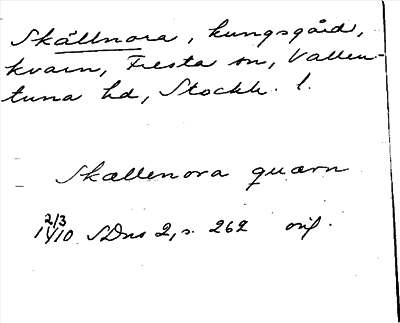 Skällnora, kungsgård,
kvarn, Fresta sn, Vallen-
tuna hd, Stockh. l.
Skællenora quærn
2/3
1410 SDns 2, s. 262 orig.